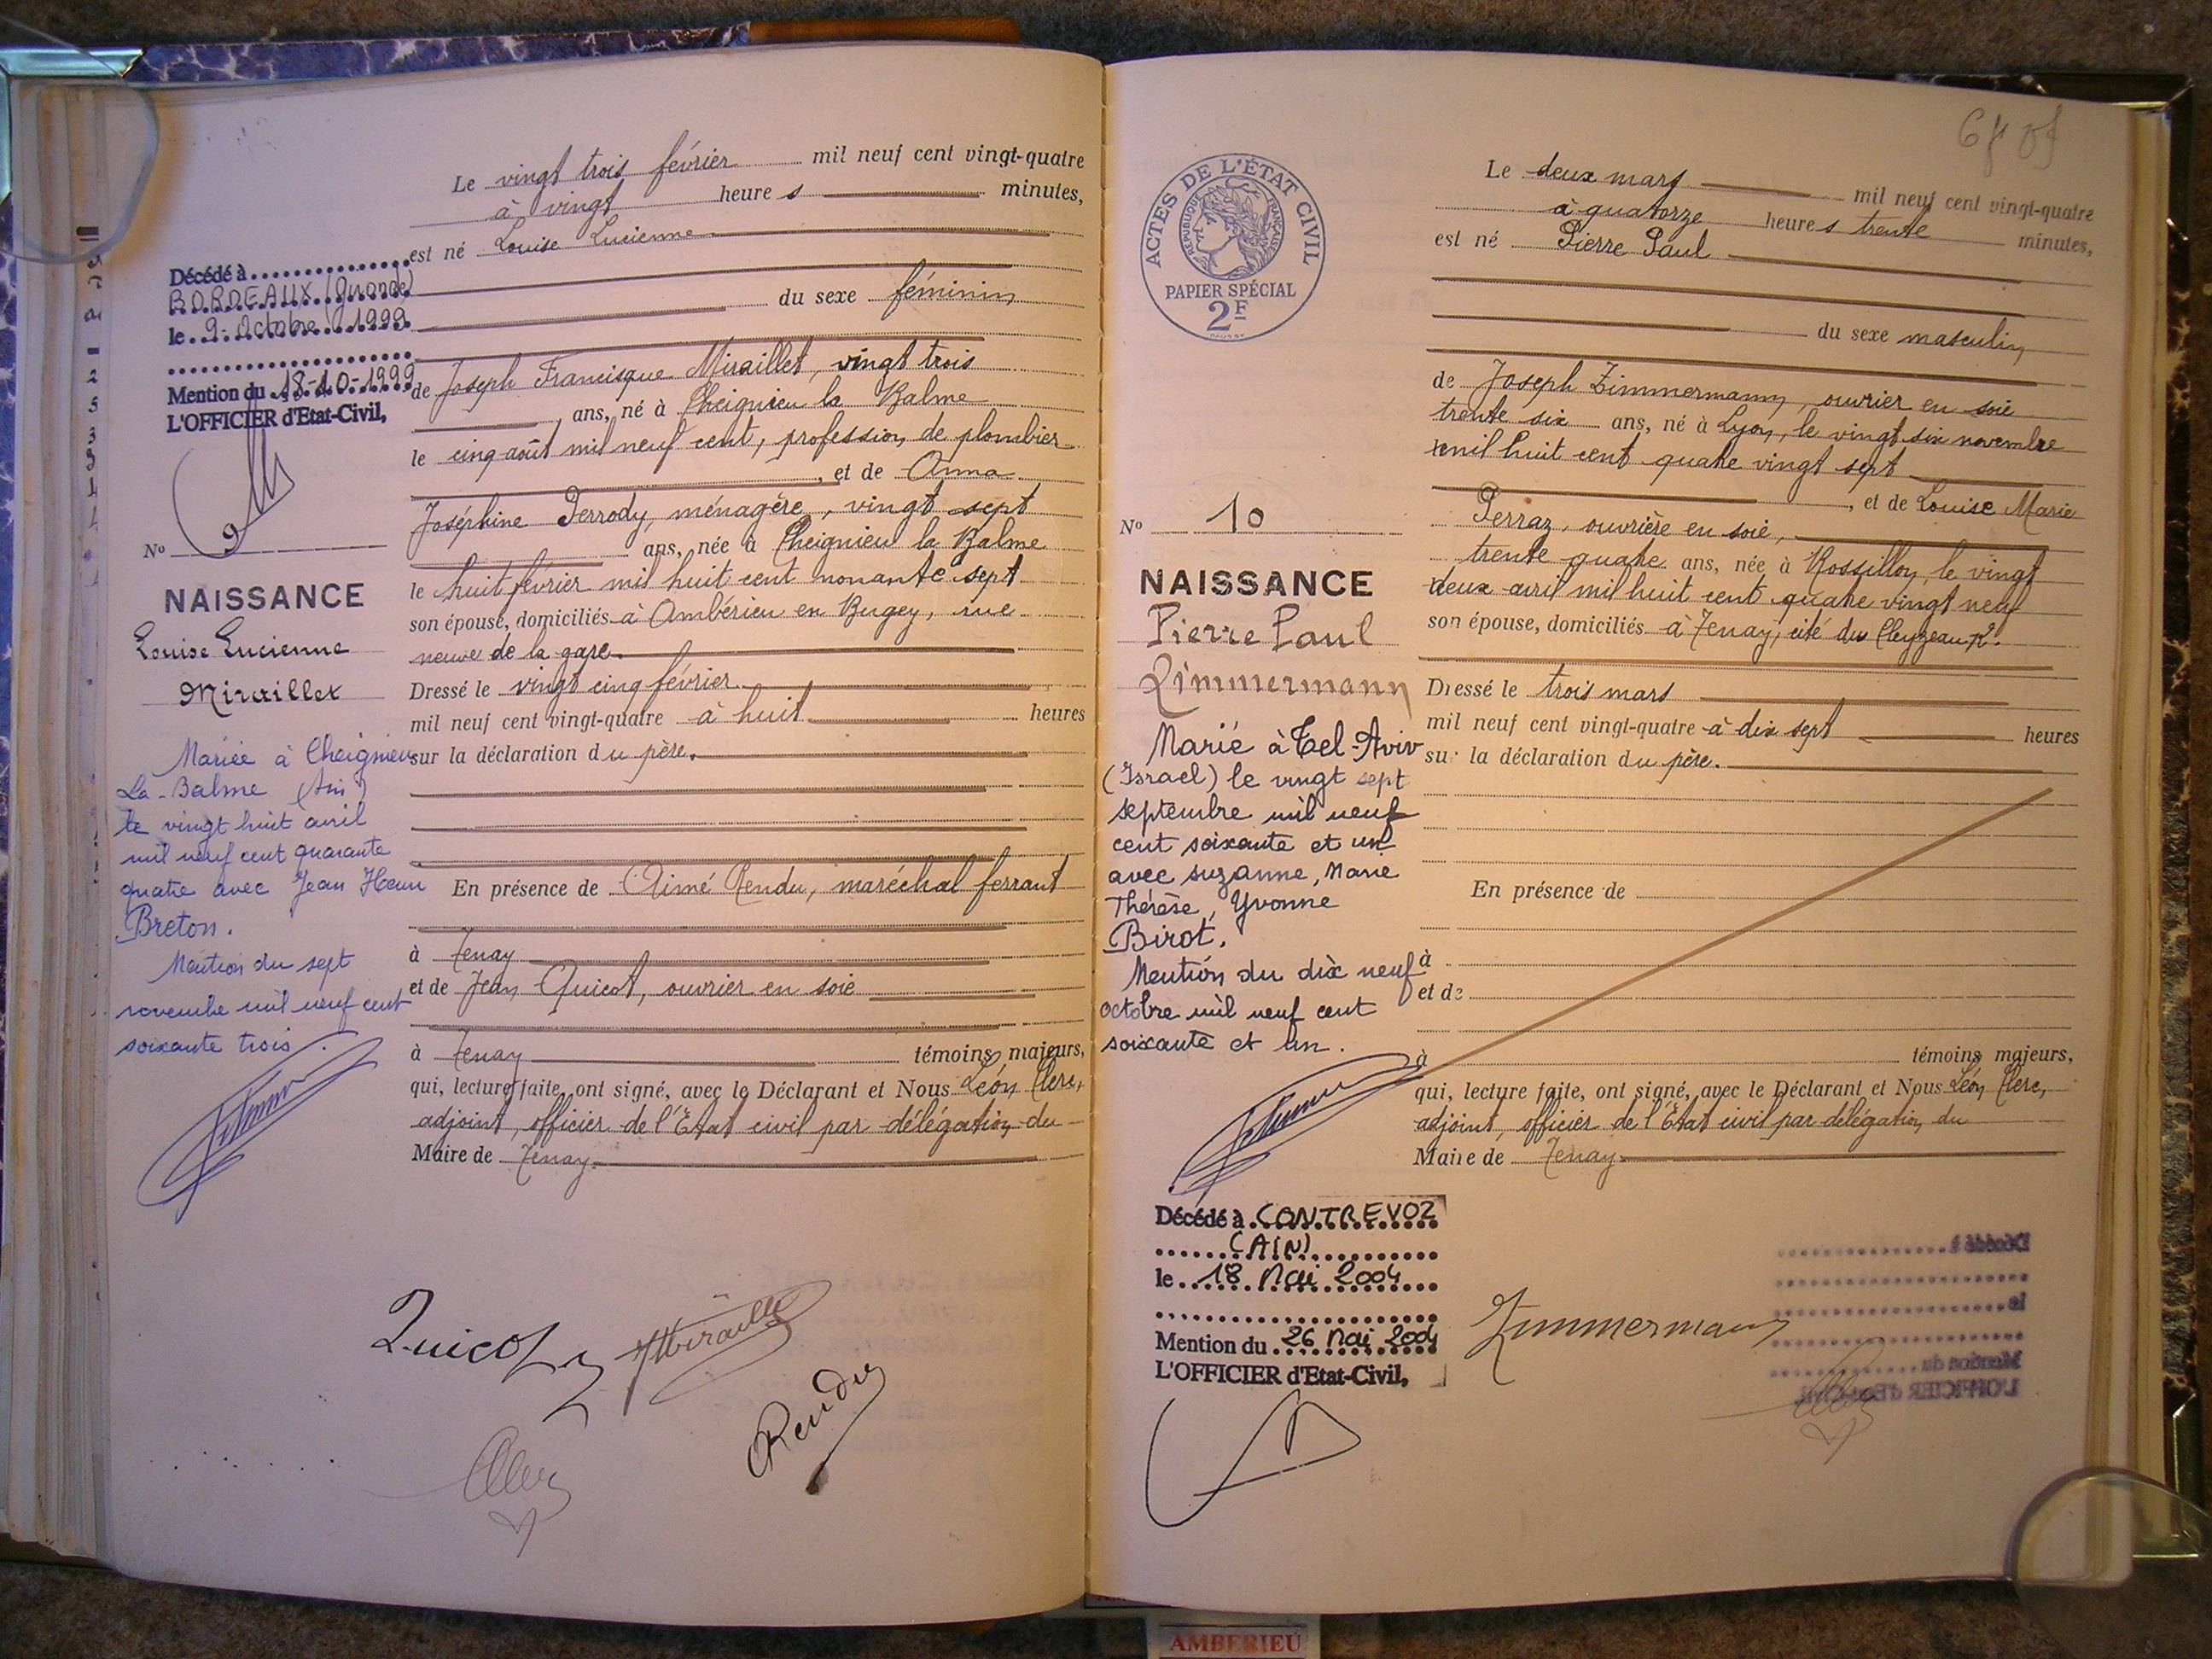 Le vingt trois février mil neuf cent vingt-quatre
à vingt heures minutes,
est né Louise Lucienne
du sexe féminin
de Joseph Francisque Miraillet, vingt trois
ans, né à Cheignieu la Balme
le cinq août mil neuf cent, profession de plombier
, et de Anna
Joséphine Perrody, ménagère, vingt sept
ans, née à Cheignieu la Balme
le huit février mil huit cent nonante sept
son épouse, domiciliés à Ambérieu en Bugey, rue
neuve de la gare.
Dressé le vingt cinq février
mil neuf cent vingt-quatre à huit heures
sur la déclaration du père.
En présence de Aimé Rendu, maréchal ferrant
à Tenay
et de Jean Quicot, ouvrier en soie
à Tenay témoins majeurs,
qui, lecture faite, ont signé, avec le Déclarant et Nous Léon Clerc,
adjoint, officier de l'État civil par délégation du
Maire de Tenay.
Décédé à
BORDEAUX (Gironde)
le 9 Octobre 1999
Mention du 18-10-1999
L'OFFICIER d'Etat-Civil,
No 9
NAISSANCE
Louise Lucienne
Miraillet
Mariée à Cheignieu
La-Balme (Ain)
le vingt huit avril
mil neuf cent quarante
quatre avec Jean Henri
Breton.
Mention du sept
novembre mil neuf cent
soixante trois.
Quicot
Miraillet
Rendu
Clerc
ACTES DE L'ÉTAT CIVIL
RÉPUBLIQUE FRANÇAISE
PAPIER SPÉCIAL
2F
Le deux mars mil neuf cent vingt-quatre
à quatorze heures trente minutes,
est né Pierre Paul
du sexe masculin
de Joseph Zimmermann, ouvrier en soie
trente six ans, né à Lyon, le vingt six novembre
mil huit cent quatre vingt sept
, et de Louise Marie
Perraz, ouvrière en soie,
trente quatre ans, née à Rossillon, le vingt
deux avril mil huit cent quatre vingt neuf
son épouse, domiciliés à Tenay, cité du Cleyzeau
Dressé le trois mars
mil neuf cent vingt-quatre à dix sept heures
sur la déclaration du père.
En présence de
à
et de
à témoins majeurs,
qui, lecture faite, ont signé, avec le Déclarant et Nous Léon Clerc,
adjoint, officier de l'État civil par délégation du
Maire de Tenay.
No 10
NAISSANCE
Pierre Paul
Zimmermann
Marié à Tel-Aviv
(Israel) le vingt sept
septembre mil neuf
cent soixante et un
avec Suzanne, Marie
Thérèse, Yvonne
Birot.
Mention du dix neuf
octobre mil neuf cent
soixante et un.
Décédé à CONTREVOZ
(AIN)
le 18 Mai 2004
Mention du 26 Mai 2004
L'OFFICIER d'Etat-Civil,
Zimmermann
Clerc
AMBERIEU